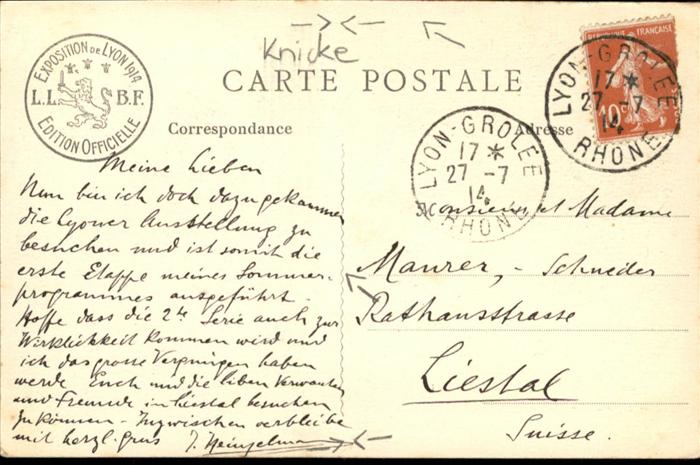 Knicke
EXPOSITION DE LYON 1914
L.L. B.F.
EDITION OFFICIELLE
CARTE POSTALE
REPUBLIQUE FRANÇAISE
10c
LYON-GROLÉE
17 *
27 -7
14
RHONE
LYON-GROLÉE
17 *
27 -7
14
RHONE
Correspondance
Adresse
Meine Lieben
Nun bin ich doch dazu gekommen
die Lyoner Ausstellung zu
besuchen und ist somit die
erste Etappe meines Sommer-
programmes ausgeführt.
Hoffe dass die 2te Serie auch zur
Wirklichkeit kommen wird und
ich das grosse Vergnügen haben
werde Euch und die lieben Verwandten
und Freunde in Liestal besuchen
zu können - Inzwischen verbleibe
mit herzl. grus J.
Monsieur et Madame
Maurer, - Schneider
Rathausstrasse
Liestal
Suisse.